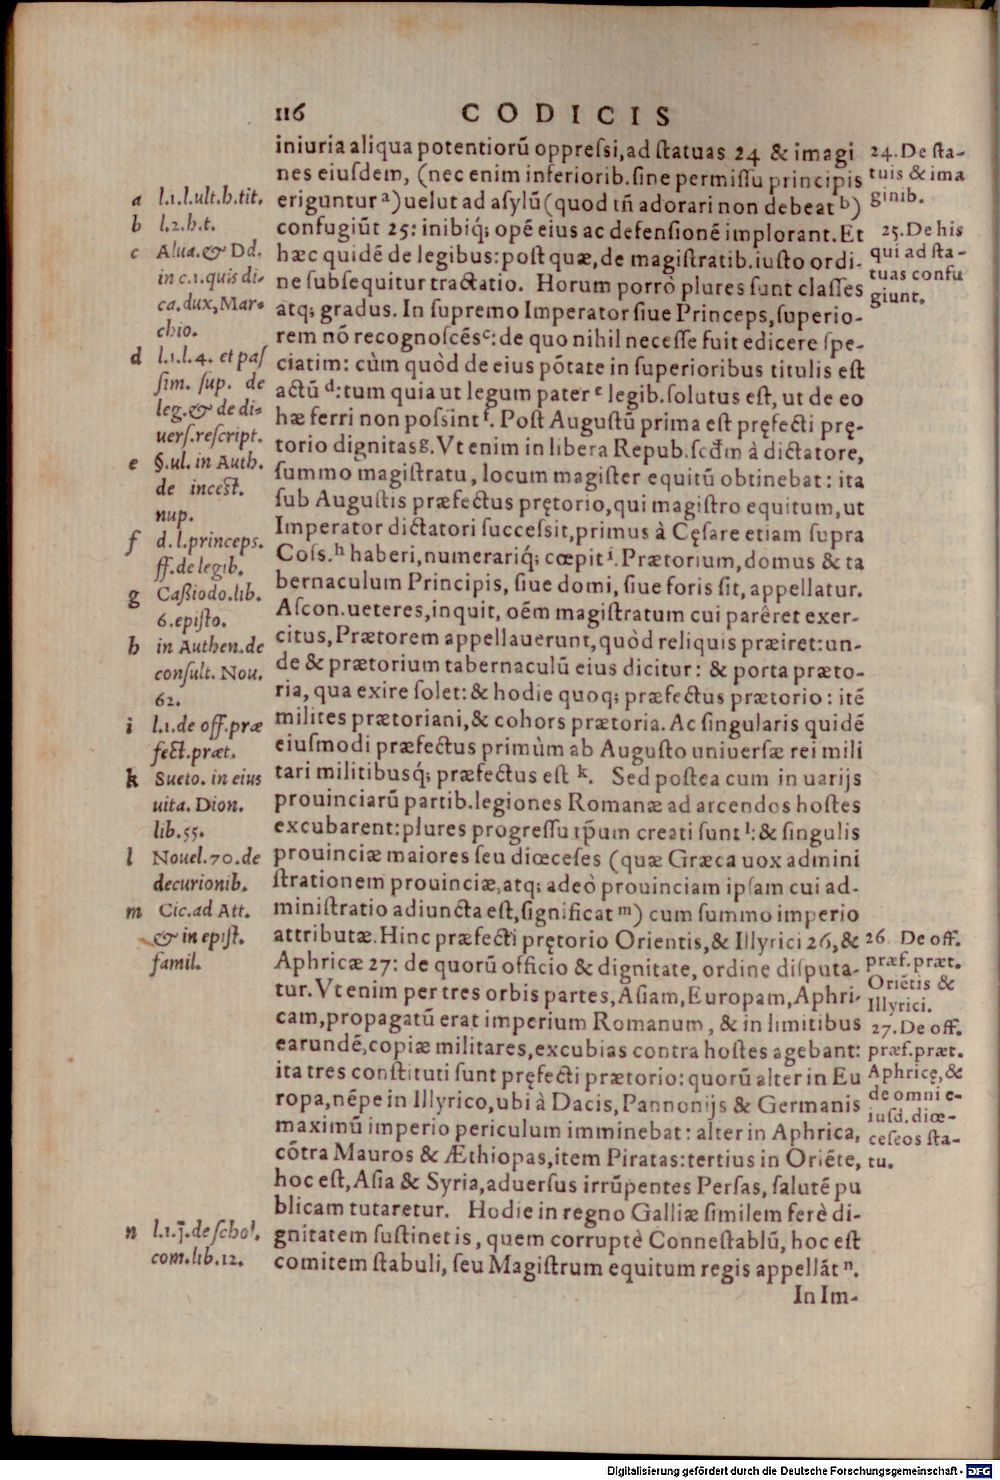 116 CODICIS
iniuria aliqua potentiorũ oppreſsi, ad ſtatuas 24 & imagi
nes eiuſdem, (nec enim inferiorib. ſine permiſſu principis
eriguntur ᵃ) uelut ad aſylũ (quod tñ adorari non debeat ᵇ)
confugiũt 25: inibiq́; opẽ eius ac defenſionẽ implorant. Et
hæc quidẽ de legibus: poſt quæ, de magiſtratib. iuſto ordi-
ne ſubſequitur tractatio. Horum porrò plures ſunt claſſes
atq; gradus. In ſupremo Imperator ſiue Princeps, ſuperio-
rem nõ recognoſcẽs ᶜ: de quo nihil neceſſe fuit edicere ſpe-
ciatim: cùm quòd de eius põtate in ſuperioribus titulis eſt
actũ ᵈ: tum quia ut legum pater ᵉ legib. ſolutus eſt, ut de eo
hæ ferri non poſsint ᶠ. Poſt Auguſtũ prima eſt pręfecti prę-
torio dignitas ᵍ. Vt enim in libera Repub. ſcđm à dictatore,
ſummo magiſtratu, locum magiſter equitũ obtinebat: ita
ſub Auguſtis præfectus prętorio, qui magiſtro equitum, ut
Imperator dictatori ſucceſsit, primus à Cęſare etiam ſupra
Coſs. ʰ haberi, numerariq́; cœpit ⁱ. Prætorium, domus & ta
bernaculum Principis, ſiue domi, ſiue foris ſit, appellatur.
Aſcon. ueteres, inquit, oẽm magiſtratum cui parêret exer-
citus, Prætorem appellauerunt, quòd reliquis præiret: un-
de & prætorium tabernaculũ eius dicitur: & porta præto-
ria, qua exire ſolet: & hodie quoq; præfectus prætorio: itẽ
milites prætoriani, & cohors prætoria. Ac ſingularis quidẽ
eiuſmodi præfectus primùm ab Auguſto uniuerſæ rei mili
tari militibusq́; præfectus eſt ᵏ. Sed poſtea cum in uarijs
prouinciarũ partib. legiones Romanæ ad arcendos hoſtes
excubarent: plures progreſſu tp̃um creati ſunt ˡ: & ſingulis
prouinciæ maiores ſeu diœceſes (quæ Græca uox admini
ſtrationem prouinciæ, atq; adeò prouinciam ipſam cui ad-
miniſtratio adiuncta eſt, ſignificat ᵐ) cum ſummo imperio
attributæ. Hinc præfecti prętorio Orientis, & Illyrici 26, &
Aphricæ 27: de quorũ officio & dignitate, ordine diſputa-
tur. Vt enim per tres orbis partes, Aſiam, Europam, Aphri-
cam, propagatũ erat imperium Romanum, & in limitibus
earundẽ, copiæ militares, excubias contra hoſtes agebant:
ita tres conſtituti ſunt pręfecti prætorio: quorũ alter in Eu
ropa, nẽpe in Illyrico, ubi à Dacis, Pannonijs & Germanis
maximũ imperio periculum imminebat: alter in Aphrica,
cõtra Mauros & Æthiopas, item Piratas: tertius in Oriẽte,
hoc eſt, Aſia & Syria, aduerſus irrũpentes Perſas, ſalutẽ pu
blicam tutaretur. Hodie in regno Galliæ ſimilem ferè di-
gnitatem ſuſtinet is, quem corruptè Conneſtablũ, hoc eſt
comitem ſtabuli, ſeu Magiſtrum equitum regis appellãt ⁿ.
In Im-
a l.1.l.ult.h.tit.
b l.2.h.t.
c Alua. & Dd.
in c.1. quis di-
ca. dux, Mar-
chio.
d l.1.l.4. et paſ
ſim. ſup. de
leg. & de di-
uerſ. reſcript.
e §. ul. in Auth.
de inceſt.
nup.
f d.l. princeps.
ff. de legib.
g Caßiodo. lib.
6. epiſto.
h in Authen. de
conſult. Nou.
62.
i l.1. de off. præ
fect. præt.
k Sueto. in eius
uita. Dion.
lib. 55.
l Nouel. 70. de
decurionib.
m Cic. ad Att.
& in epiſt.
famil.
n l.1. j̃. de ſchol.
com. lib. 12.
24. De ſta-
tuis & ima
ginib.
25. De his
qui ad ſta-
tuas confu
giunt.
26. De off.
præf. præt.
Oriẽtis &
Illyrici.
27. De off.
præf. præt.
Aphricę, &
de omni e-
iuſd. diœ-
ceſeos ſta-
tu.
Digitalisierung gefördert durch die Deutsche Forschungsgemeinschaft - DFG